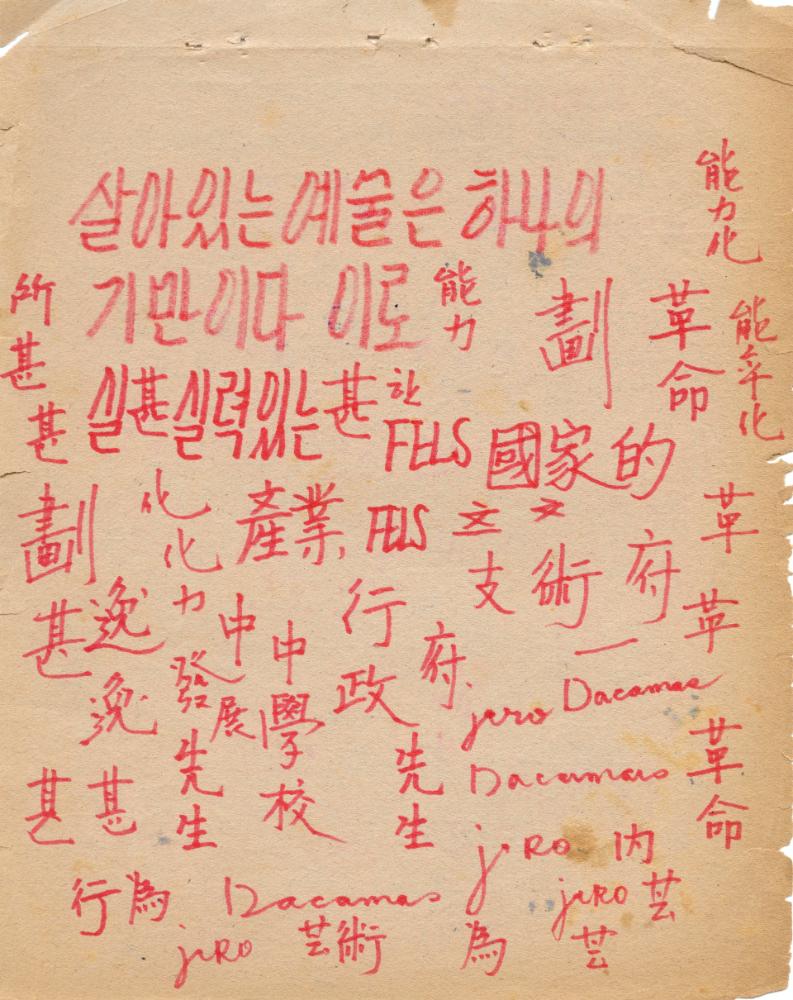 살아있는 예술은 하나의
기만이다 이로 能力
能力化
所 甚 甚
劃 革命 能率化
실甚실력있는甚한
FELS 國家的
劃 化 產業 FELS 文 文 革
化 支 術 府
甚 逸 力 中 中 行 一 革
逸 發展 學校 政 府 jiro Dacamas
先生 先生 Dacamaro 革命
甚 甚 jiRO 内
行為 Dacamas jiRO 芸
jiRO 芸術 為 芸